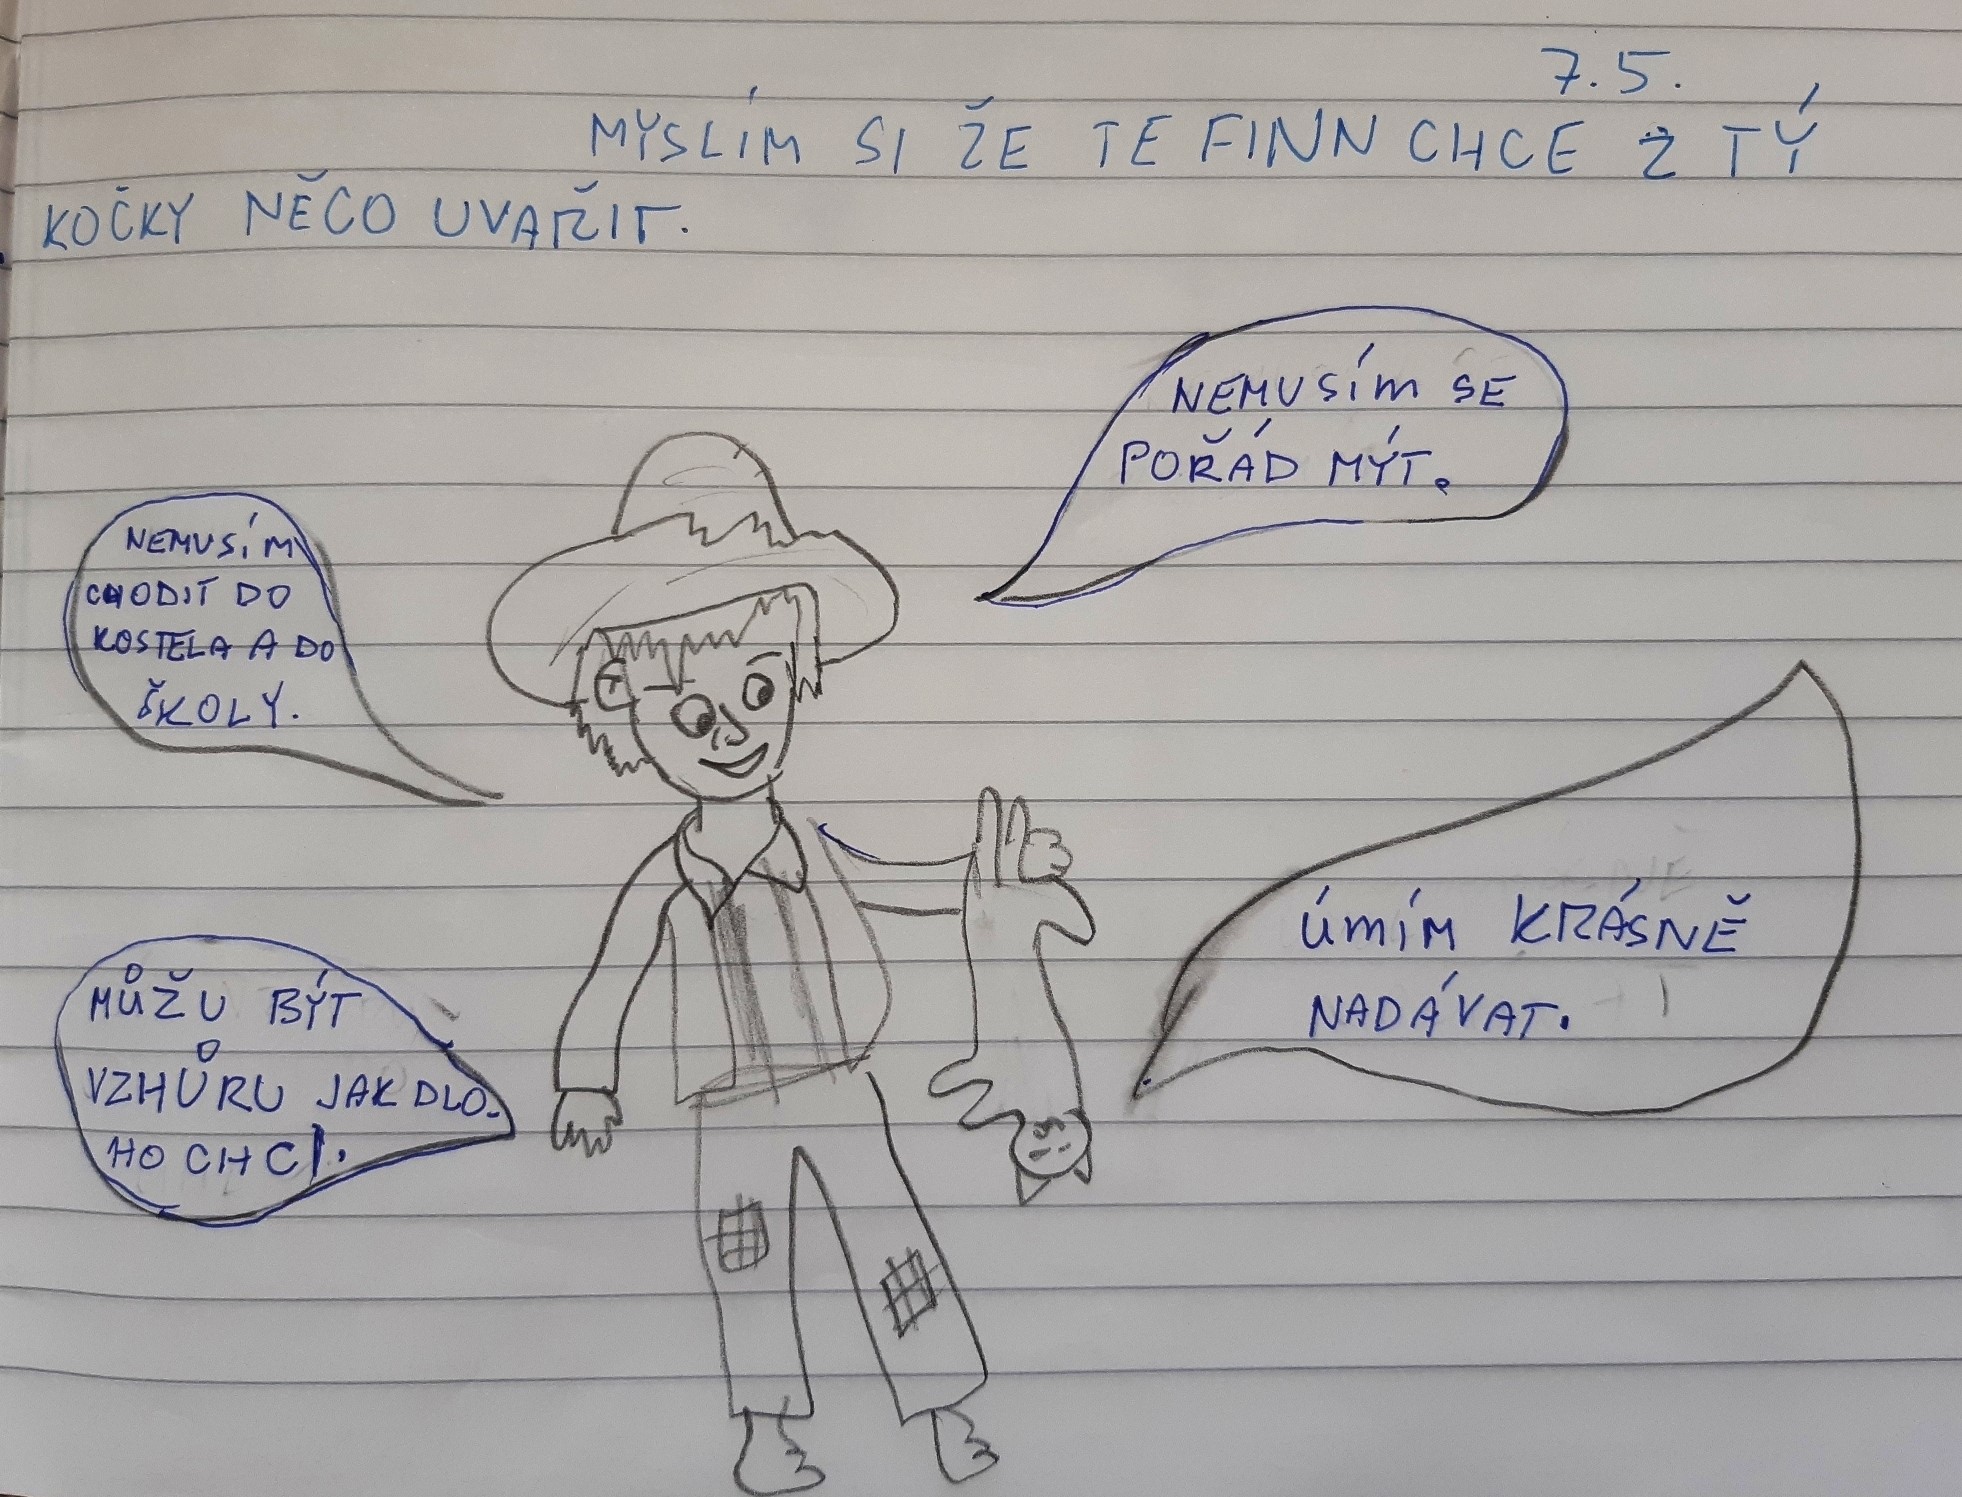 7.5.
MYSLÍM SI ŽE TE FINN CHCE Z TÝ
KOČKY NĚCO UVAŘIT.
NEMUSÍM SE
POŘÁD MÝT.
NEMUSÍM
CHODIT DO
KOSTELA A DO
ŠKOLY.
ÚMÍM KRÁSNĚ
NADÁVAT.
MŮŽU BÝT
VZHŮRU JAK DLO-
HO CHCI.